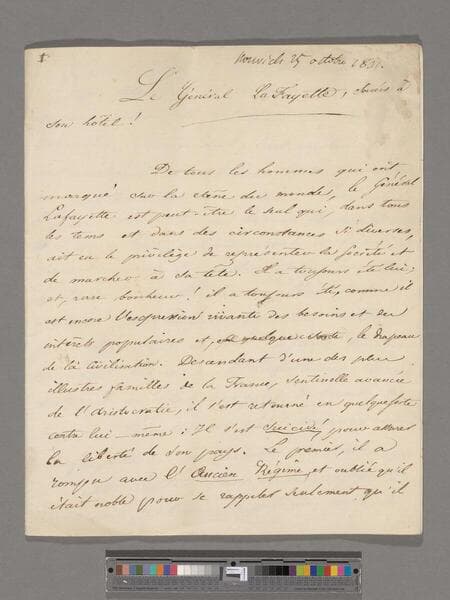 25 octobre
Le Général LaFayette, à
son hôtel!
De tous les hommes qui ont
marqué sur la scène du monde, le Général
Lafayette est peut-être le seul qui, dans tous
les tems et dans des circonstances si diverses,
ait eu le privilège de représenter la Société et
de marcher à sa tête. Il a toujours été lui,
et, rare bonheur! il a toujours été, comme il
est encore l'expression vivante des besoins et des
intérêts populaires et, en quelque sorte, le drapeau
de la Civilisation. Descendant d'une des plus
illustres familles de la France, Sentinelle avancée
de l'Aristocratie, il s'est retourné en quelque sorte
contre lui-même: Il s'est suicidé, pour assurer
la liberté de son pays. Le premier, il a
rompu avec l'Ancien Régime, et oublié qu'il
était noble pour se rappeler seulement qu'il